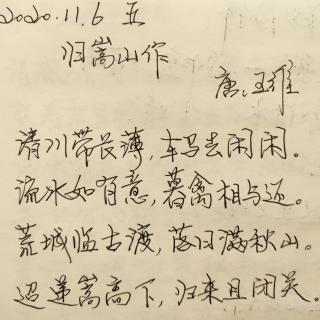 2020.11.6 五
归嵩山作
唐:王维
清川带长薄,车马去闲闲。
流水如有意,暮禽相与还。
荒城临古渡,落日满秋山。
迢递嵩高下,归来且闭关。